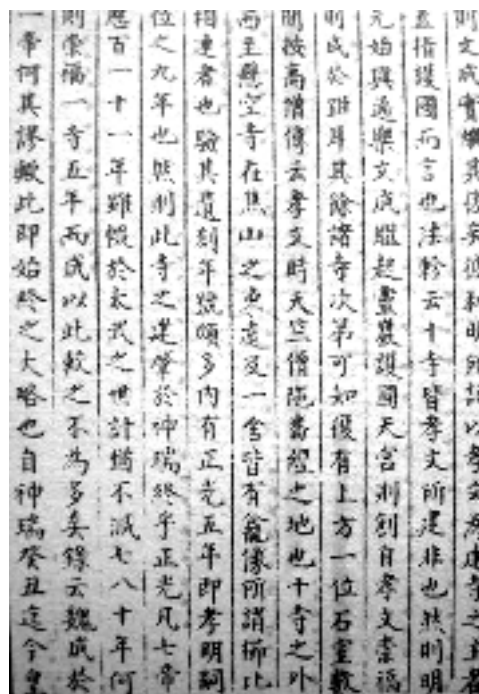 則文成實其以孝文為建寺之主者
蓋指護國而言也法軫云十寺皆孝文所建非也然則明
元始興通樂文成繼起靈巖護國天宮則創自孝文崇福
則成於鉗耳其餘諸寺次第可知復有上方一位石室數
間按高僧傳云孝文時天竺僧陁番經之地也十寺之外
西至懸空寺在焦山之東遠及一舍皆有龕像所謂櫛比
相連者也驗其遺刻年號頗多內有正光五年即孝明嗣
位之九年也然則此寺之建肇於神瑞終乎正光凡七帝
歷百一十一年雖輟於太武之世計猶不減七八十年何
則崇福一寺五年而成以此較之不為多矣錄云魏成於
一帝何其謬歟此即始終之大略也自神瑞癸丑迄今皇